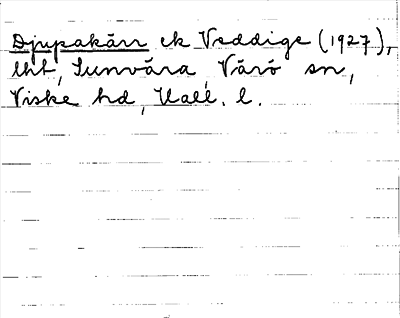 Djupakärr ek Veddige (1927),
lht, Sunvära, Värö sn,
Viske hd, Hall. l.